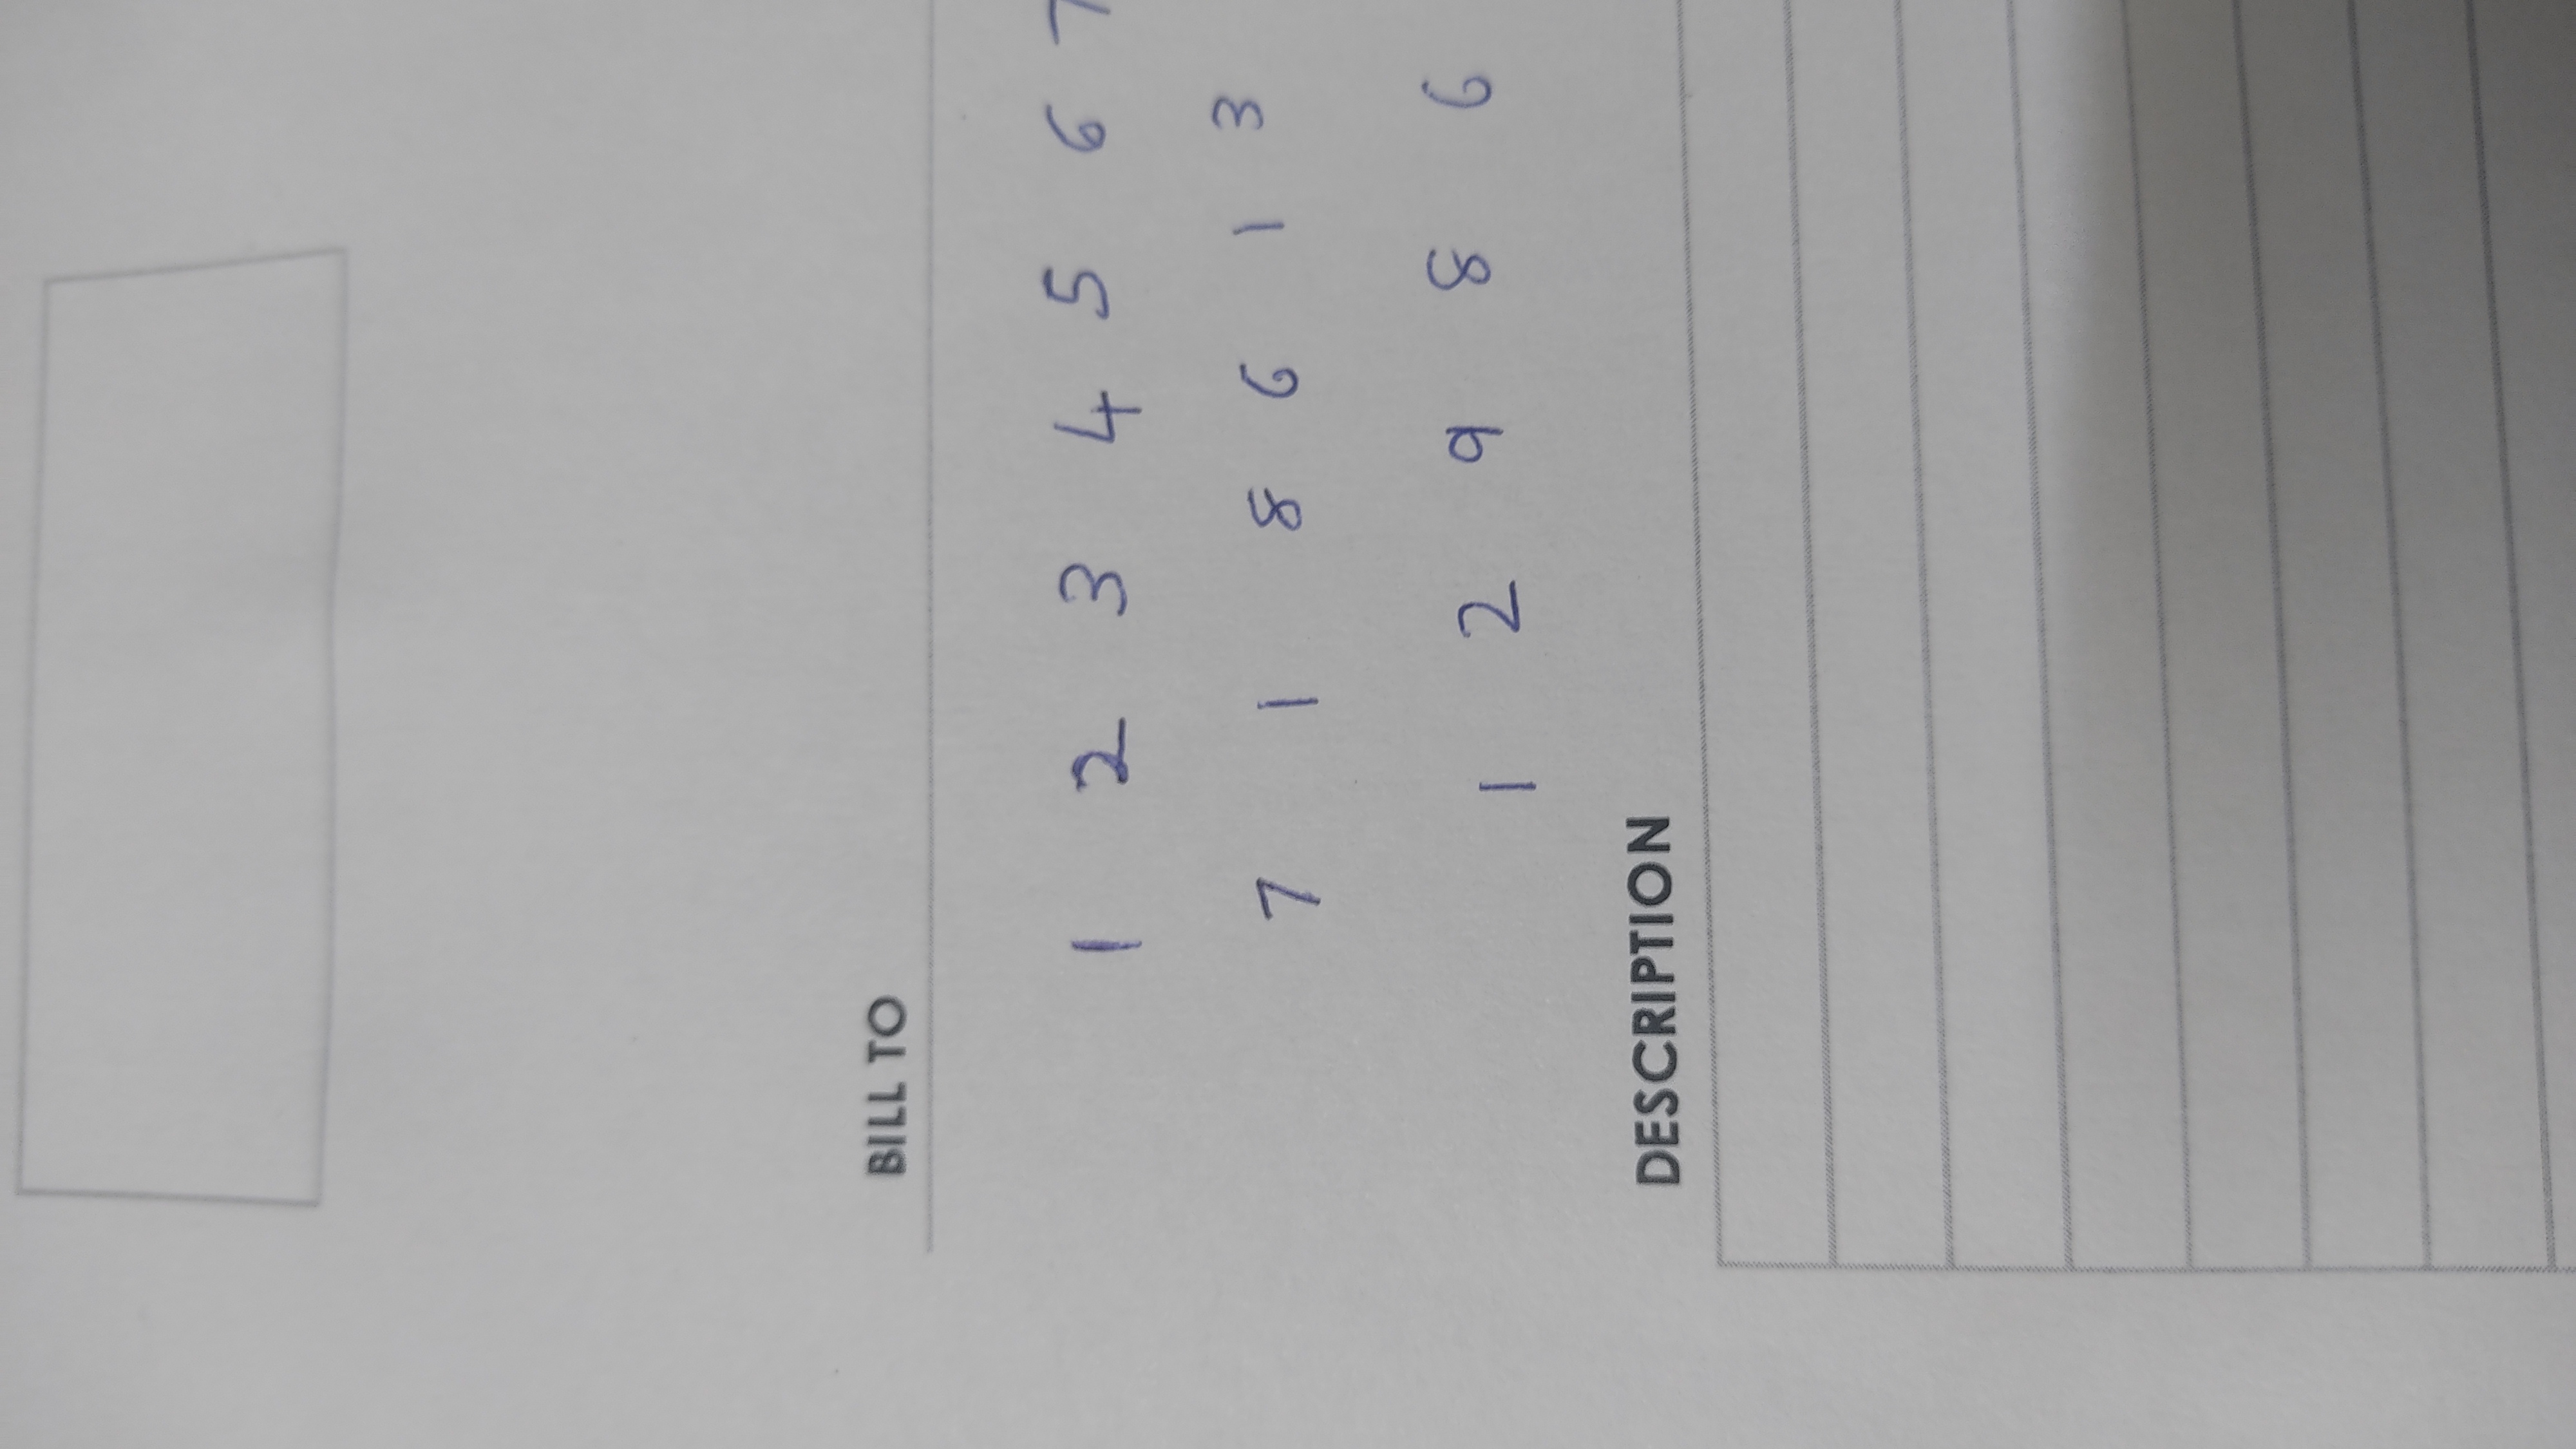 BILL TO
1 2 3 4 5 6 7
7 1 8 6 1 3
1 2 9 8 6
DESCRIPTION